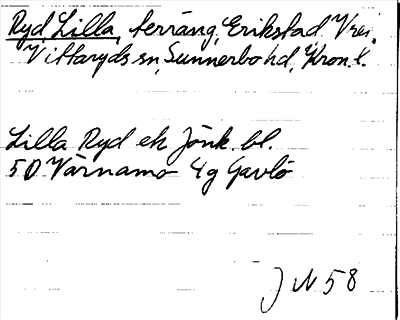 Ryd, Lilla, terräng, Erikstad Vrei,
Vittaryds sn, Sunnerbo hd, Kron. l.
Lilla Ryd ek Jönk. bl.
5D Värnamo 4g Gavlö
JN 58